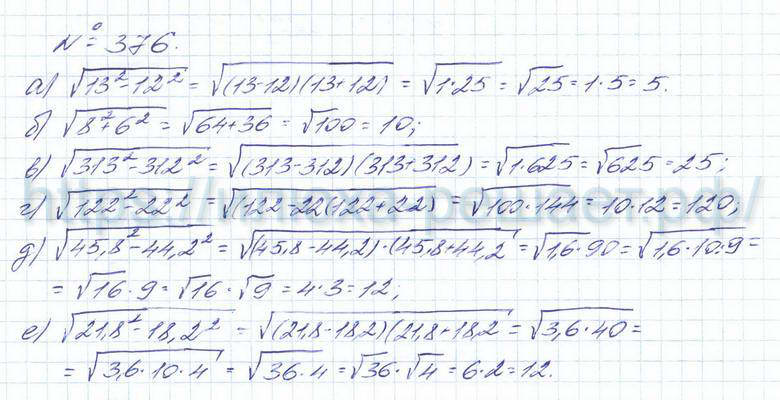 № 376.
а) √(13² - 12²) = √((13-12)(13+12)) = √(1·25) = √25 = 1·5 = 5.
б) √(8² + 6²) = √(64+36) = √100 = 10;
в) √(313² - 312²) = √((313-312)(313+312)) = √(1·625) = √625 = 25;
г) √(122² - 22²) = √((122-22(122+22)) = √(100·144) = 10·12 = 120;
д) √(45,8² - 44,2²) = √((45,8-44,2)·(45,8+44,2) = √(1,6)·90 = √(1,6·10·9) =
= √16·9 = √16·√9 = 4·3 = 12;
е) √(21,8² - 18,2²) = √((21,8-18,2)(21,8+18,2) = √(3,6·40) =
= √(3,6·10·4) = √(36·4) = √36·√4 = 6·2 = 12.